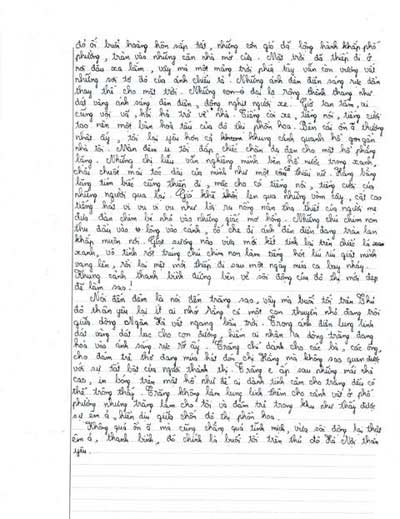 đỏ ối buổi hoàng hôn sắp tắt, những cơn gió đã lồng hành khắp phố
phường, tràn vào những căn nhà mở cửa. Mặt trời đã thiếp đi ở
nơi đâu xa lắm, vậy mà một mảng trời phía tây vẫn còn vương vất
những sợi tơ đỏ của ánh chiều tà. Những ánh đèn điện sáng rực dần
thay thế cho mặt trời. Những con đại lộ rộng thênh thang như
dát vàng ánh sáng đèn điện, đông nghịt người xe. Giờ tan tầm, ai
cũng vội vã, hối hả trở về nhà. Tiếng còi xe, tiếng nói, tiếng cười
tạo nên một bản hoà tấu của đô thị phồn hoa. Bên cái ồn ã thường
nhật ấy, tôi lại yêu hơn cả khung cảnh quanh hồ gươm gần
nhà tôi. Màn đêm u tối đắp chiếc chăn dạ đen cho mặt hồ phẳng
lặng. Những chị liễu vẫn nghiêng mình bên hồ nước trong xanh,
chải chuốt mái tóc dài của mình như một thiếu nữ. Hàng bằng
lăng tím biếc cũng thiếp đi, mặc cho có tiếng nói, tiếng cười của
những người qua lại. Gió khẽ khàng len qua những vòm cây, cất cao
tiếng hát vi vu vi vu như lời ru nồng nàn tha thiết của người mẹ
đưa đàn chim bé nhỏ vào những giấc mơ hồng. Những chú chim non
thu đầu vào lông vào cánh, cố che đi ánh đèn điện đang tràn lan
khắp muôn nơi. Giọt sương nào vừa mới kết tinh lại trên chiếc lá
xanh, vô tình rớt trúng chú chim non làm tiếng hót líu ríu giật mình
vang lên, rồi lại mệt mỏi thiếp đi sau một ngày múa ca bay nhảy.
Khung cảnh thanh bình đứng bên vẻ sôi động của đô thị mới đẹp
đẽ làm sao!
Nói đến đêm là nói đến trăng sao, vậy mà buổi tối trên Thủ
đô thân yêu lại ít ai nhớ rằng có một con thuyền nhỏ đang trôi
giữa dòng Ngân Hà vắt ngang bầu trời. Trong ánh điện lung linh
dát vàng dát bạc cho con đường, hiếm ai nhận ra dòng trăng đang
hoà vào ánh sáng rực rỡ ấy. Trăng chỉ dành cho các bà, các ông,
cho đám trẻ thơ đang múa hát đợi chị Hằng mà không sao quen được
với sự tất bật của người thành thị. Trăng e ấp sau những mái nhà
cao, in bóng trên mặt hồ như để ai dành tình cảm cho trăng đều có
thể trông thấy. Trăng không làm lung linh thêm cho cảnh vật ở phố
phường nhưng trăng làm cho tôi và đám trẻ trong khu như thấy được
sự êm ả hiền dịu giữa chốn đô thị phồn hoa.
Không quá ồn ã mà cũng chẳng quá tĩnh mịch, vừa sôi động lại thật
êm ả, thanh bình, đó chính là buổi tối trên thủ đô Hà Nội thân
yêu.